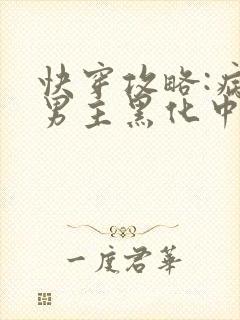 快穿攻略:病
男主黑化中
一度君华